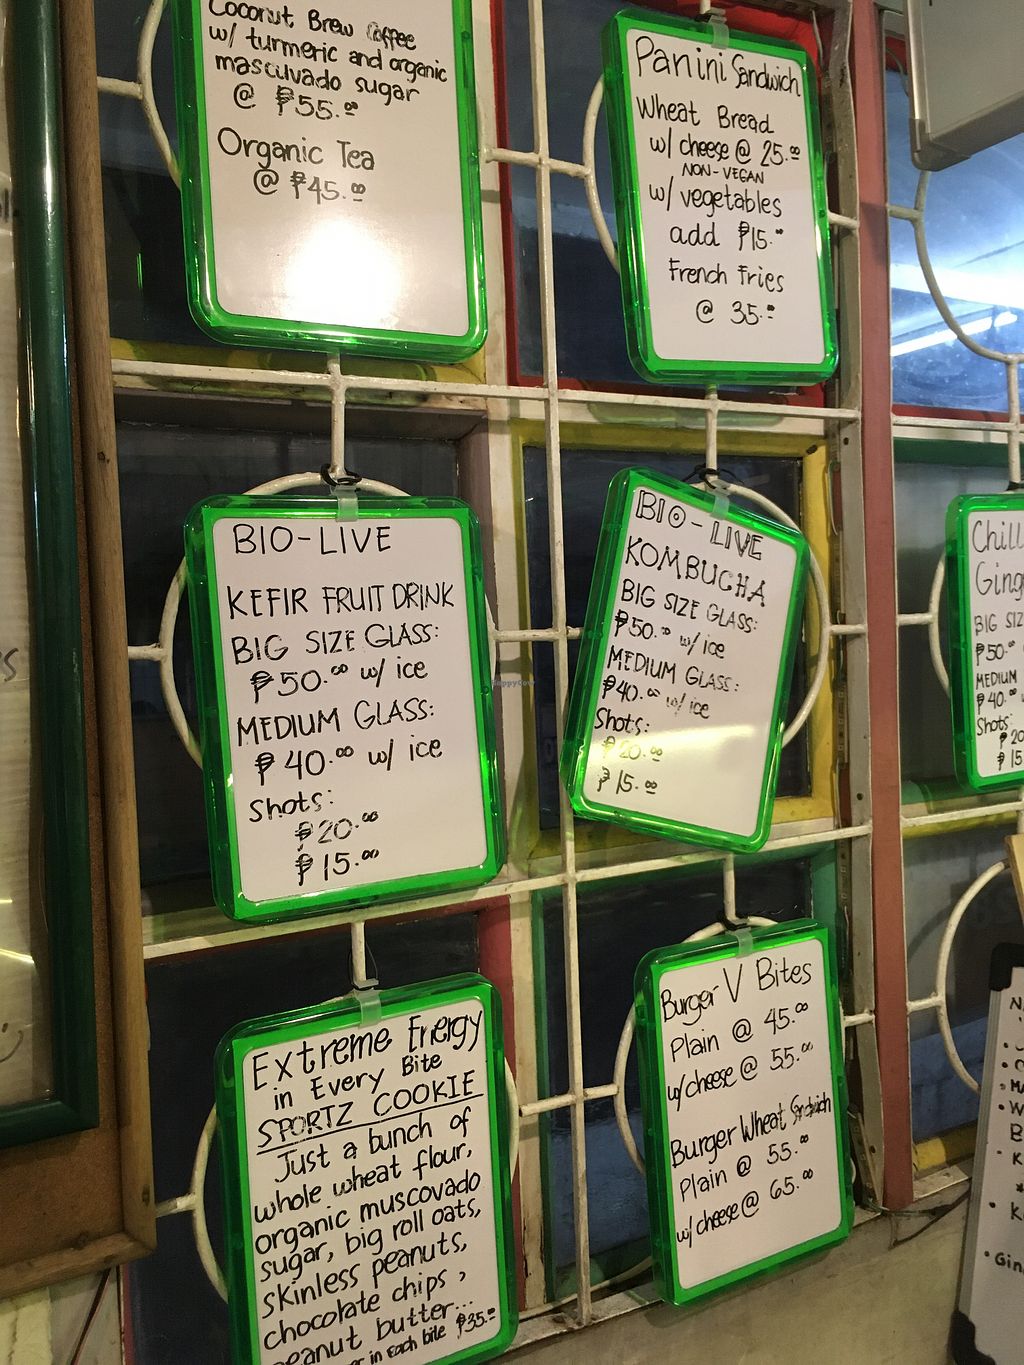 Coconut Brew Coffee
w/ turmeric and organic
mascuvado sugar
@ ₱55.00
Organic Tea
@ ₱45.00
Panini Sandwich
Wheat Bread
w/ cheese @ 25.00
NON-VEGAN
w/ vegetables
add ₱15.00
French Fries
@ 35.00
BIO-LIVE
KEFIR FRUIT DRINK
BIG SIZE GLASS:
₱50.00 w/ ice
MEDIUM GLASS:
₱40.00 w/ ice
Shots:
₱20.00
₱15.00
BIO-LIVE
KOMBUCHA
BIG SIZE GLASS:
₱50.00 w/ ice
MEDIUM GLASS:
₱40.00 w/ ice
Shots:
₱20.00
₱15.00
Chill
Ging
BIG SIZ
₱50.00
MEDIUM
₱40.00
Shots:
₱20
₱15
Extreme Energy
in Every Bite
SPORTZ COOKIE
Just a bunch of
whole wheat flour,
organic muscovado
sugar, big roll oats,
skinless peanuts,
chocolate chips,
peanut butter...
in Each bite ₱35.00
Burger V Bites
Plain @ 45.00
w/ cheese @ 55.00
Burger Wheat Sandwich
Plain @ 55.00
w/ cheese @ 65.00
HappyCow